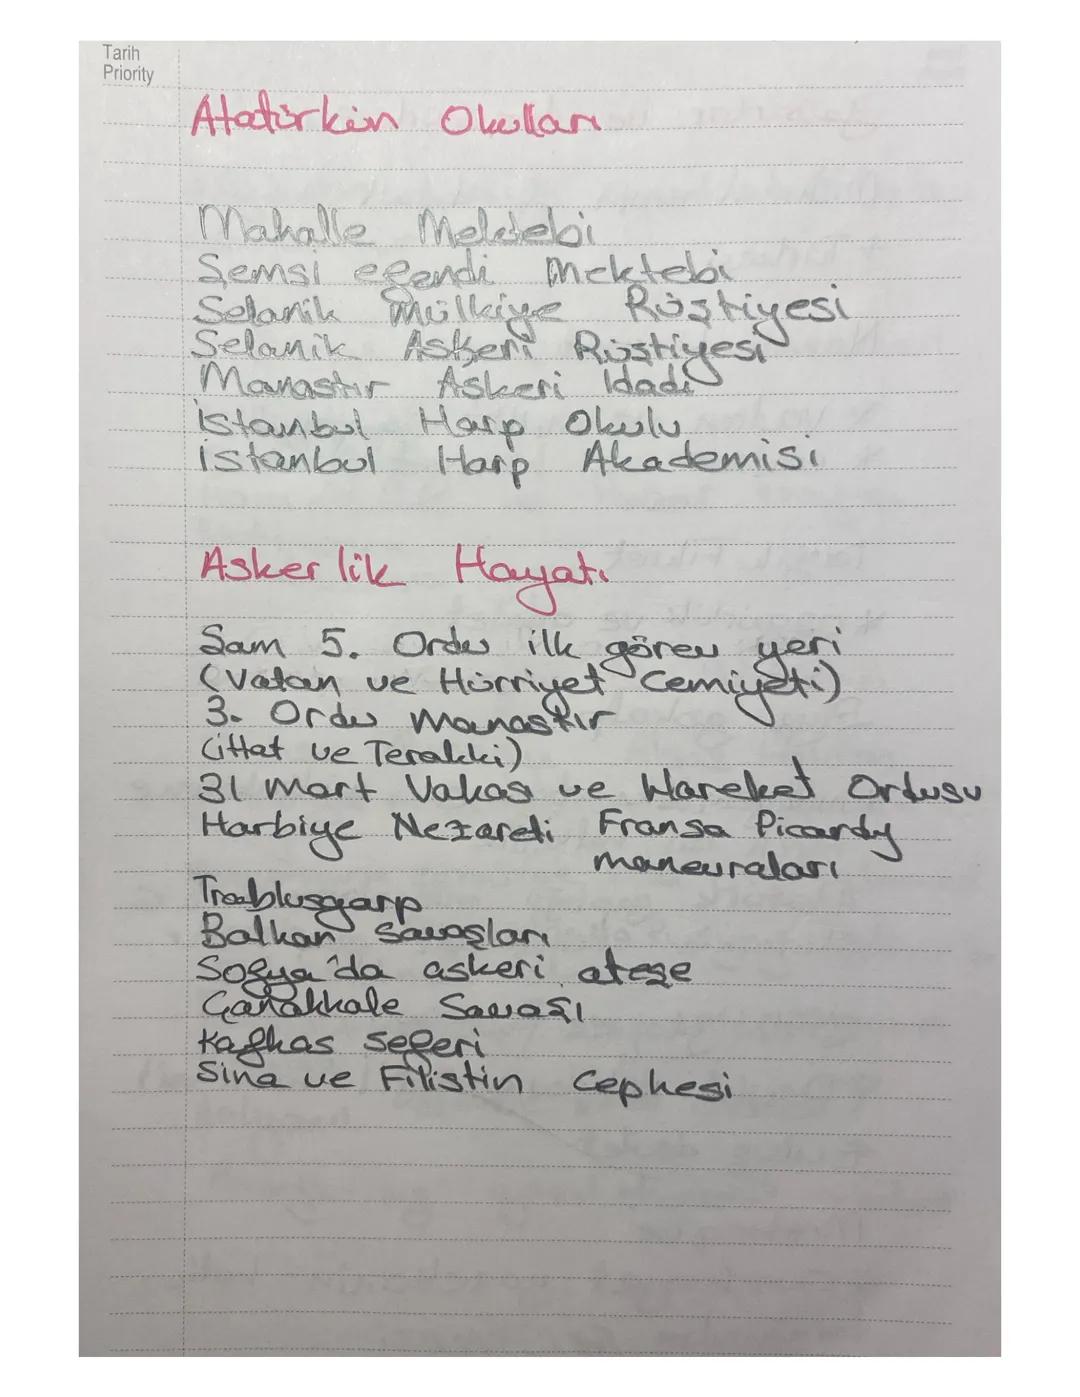 Tarih
Priority
Atatürkün Okulları
Mahalle Mektebi
Şemsi efendi Mektebi
Selanik Mülkiye Rüştiyesi
Selanik Askeri Rüştiyesi
Manastır Askeri Idadi
istanbul Harp Okulu
istanbul Harp Akademisi
Askerlik Hayatı
Şam 5. Ordu ilk görev yeri
(Vatan ve Hürriyet Cemiyeti)
3. Ordu Manastır
(ittat ve Terakki)
31 Mart Vakası ve Hareket Ordusu
Harbiye Nezareti Fransa Picardy
manevraları
Trablusgarp
Balkan savaşları
Sofya'da askeri ateşe
Çanakkale Savaşı
Kafkas seferi
Sina ve Filistin Cephesi